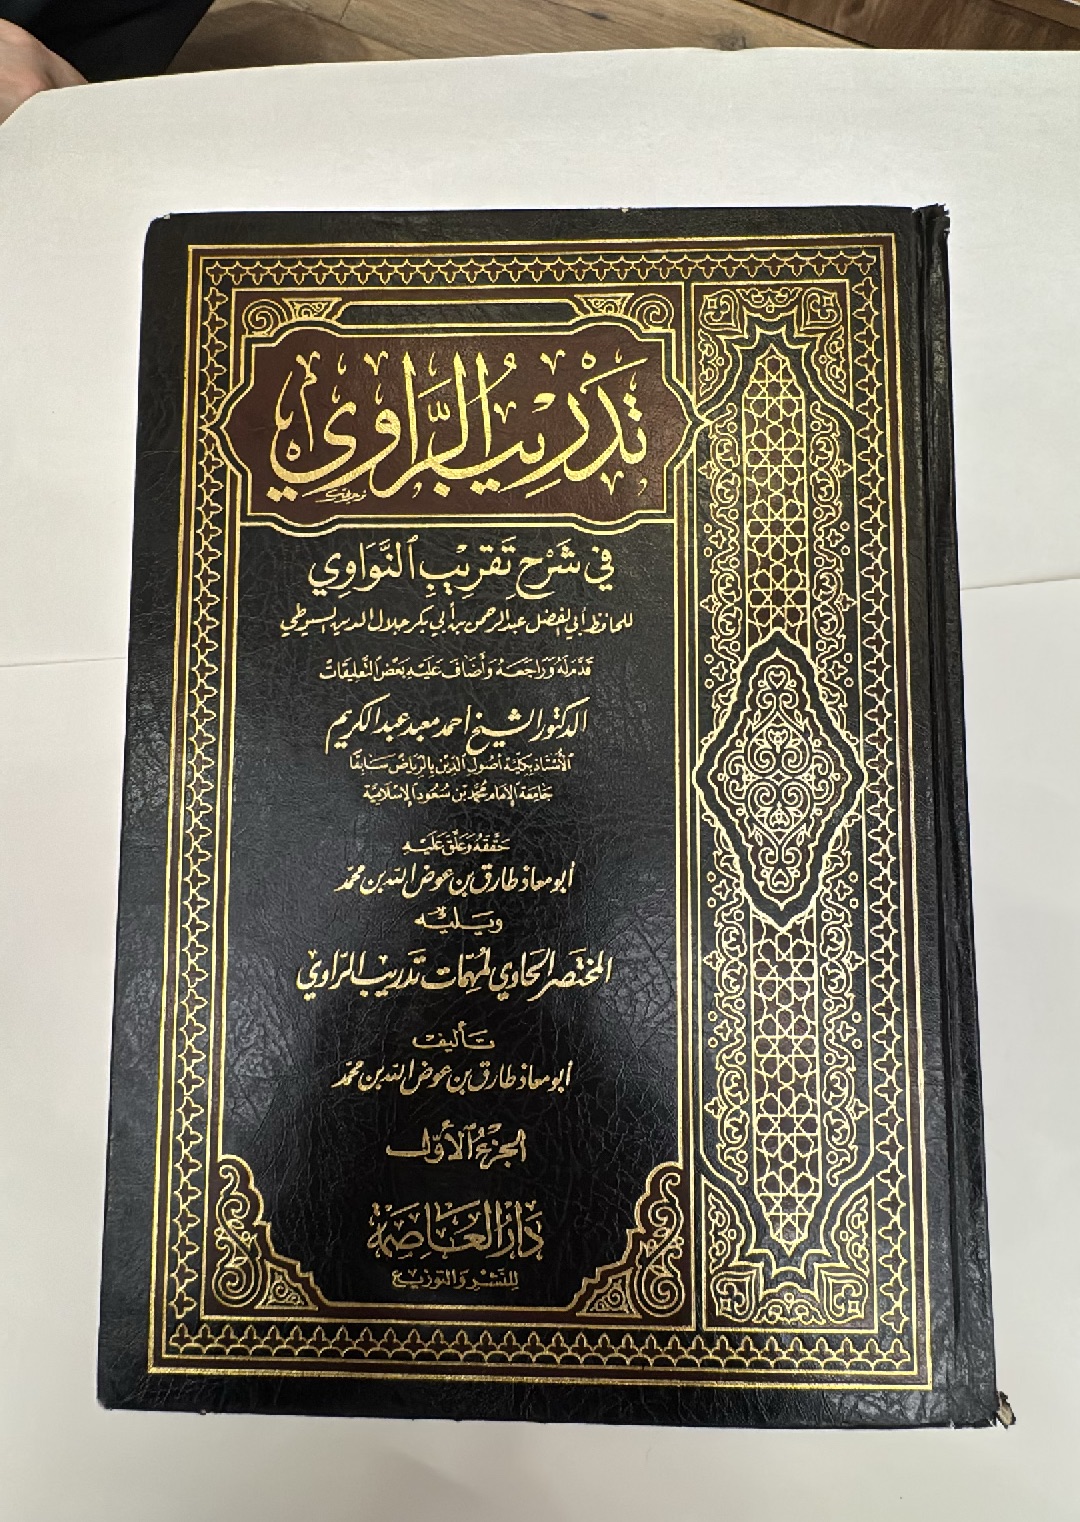 تَدْرِيبُ الرَّاوِي
فِي شَرْحِ تَقْرِيبِ ٱلنَّوَاوِي
للحافظ أبي الفضل عبد الرحمن بن أبي بكر جلال الدين السيوطي
قَدَّمَ لَهُ وَرَاجَعَهُ وَأَضَافَ عَلَيْهِ بَعْضَ التَّعْلِيقَاتِ
الدكتور الشيخ أحمد معبد عبد الكريم
الأُسْتَاذ بِكُلِّيَّة أُصُول الدِّين بِالرِّيَاض سَابِقًا
جَامِعَة الإِمَام مُحَمَّد بْن سُعُود الإِسْلَامِيَّة
حَقَّقَهُ وَعَلَّقَ عَلَيْهِ
أبو معاذ طارق بن عوض الله بن محمد
وَيَلِيْهِ
المختصر الحاوي لمُهِمَّات تَدْرِيب الرّاوي
تَأليف
أبو معاذ طارق بن عوض الله بن محمد
الجُزْءُ الأَوَّل
دَارُ العَاصِمَة
لِلنَّشْرِ وَالتَّوْزِيع